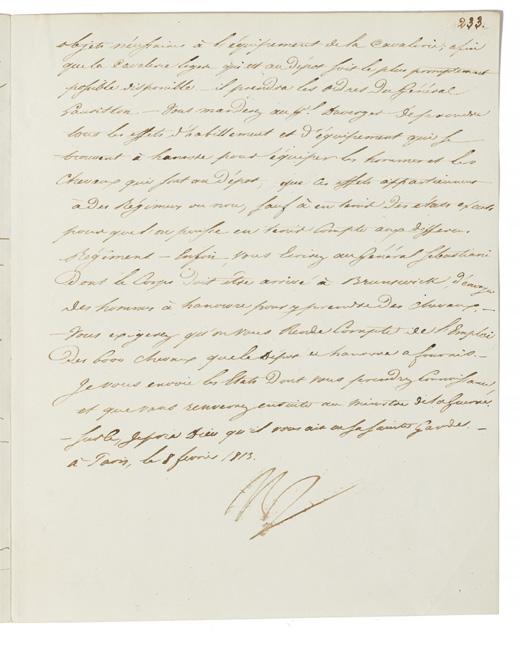 233.
objets nécessaires à l'équipement de la cavalerie; afin
que la cavalerie légère qui est au dépôt soit le plus promptement
possible disponible – il prendra les ordres du Général
Lauriston – Vous manderez au Gl. de prendre
tous les effets d'habillement et d'équipement qui se
trouvent à hanovre pour équiper les hommes et les
Chevaux qui sont au dépôt, que ces effets appartiennent
à des Régimens ou non, sauf à en tenir des états exacts
pour que l'on puisse en tenir Compte aux differens
Régiment – Enfin, vous écrirez au Général Sébastiani
dont le Corps doit être arrivé à Brunswick, d'envoyer
des hommes à hanovre pour y prendre des chevaux –
– Vous exigerez qu'on vous rende Compte de l'Emploi
des 6000 chevaux que le dépôt de hanovre a fournis –
Je vous envoie les États dont vous prendrez connaissance
et que vous renverrez ensuite au ministre de la Guerre
– Sur ce, je prie Dieu qu'il vous ait en sa sainte Garde. –
à Paris, le 8 février 1813.